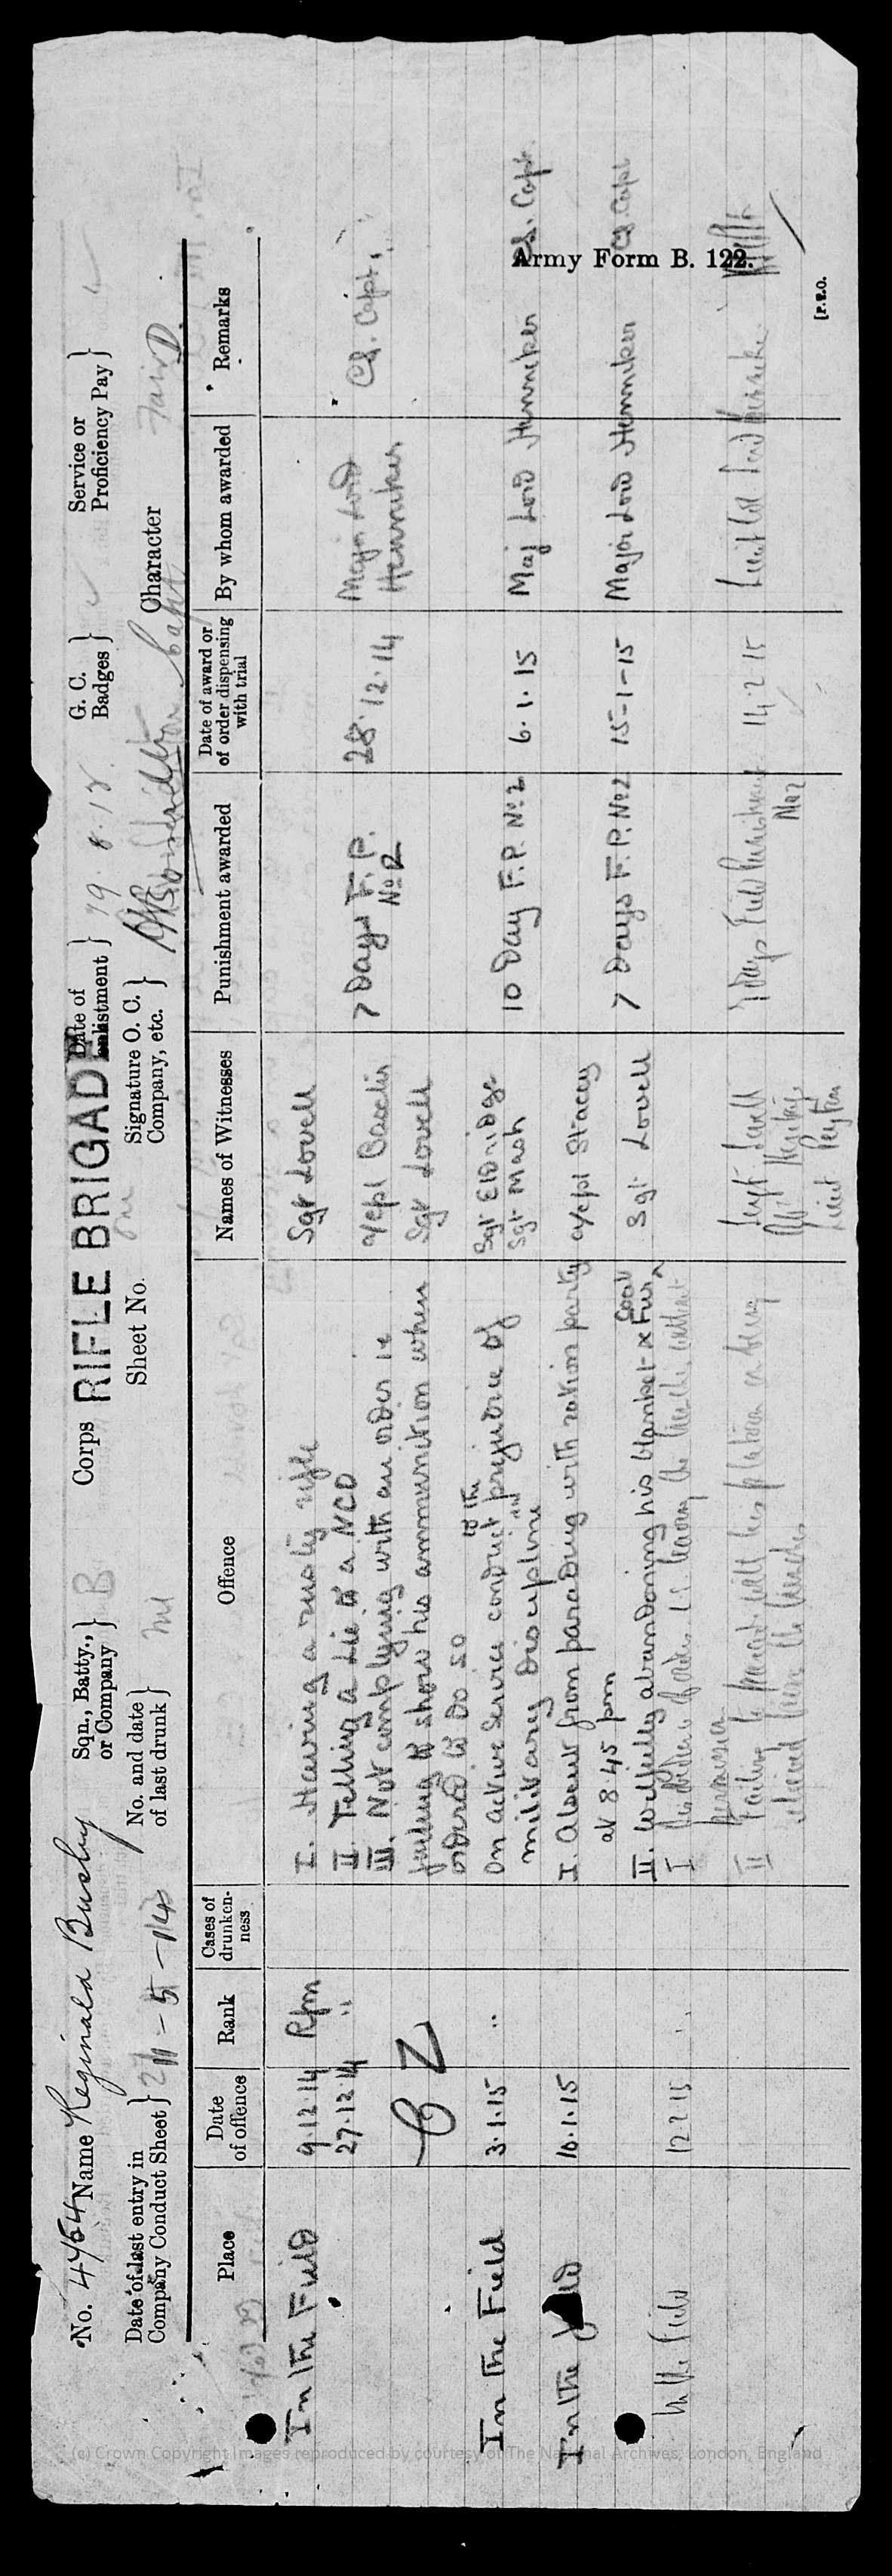 Army Form B. 122.
No. 4464 Name Reginald Busby Sqn., Batty., or Company } B Corps RIFLE BRIGADE Date of enlistment } 19.8.12. G. C. Badges } Service or Proficiency Pay }
Date of last entry in Company Conduct Sheet } No. and date of last drunk } nil Sheet No. One Signature O. C. Company, etc. } Capt Character Fair
Place
Date of offence
Rank
Cases of drunkenness
Offence
Names of Witnesses
Punishment awarded
Date of award or of order dispensing with trial
By whom awarded
Remarks
In the Field 9.12.14 Rfm I. Having a rusty rifle Sgt Lovell
27.12.14 " II. Telling a Lie to a NCO 7 Days F.P. No 2 28.12.14 Major Lord Henniker Capt.
III. Not complying with an order ie
failing to show his ammunition when Sgt Lovell
ordered to do so
In the Field 3.1.15 " On active Service conduct to the prejudice of Sgt Eldridge 10 Day F.P. No 2 6.1.15 Maj Lord Henniker Capt.
military and Discipline Sgt Mash
In the Field 10.1.15 I. Absent from parading with ration party a/cpl Stacey
at 8 45 pm
II. Wilfully abandoning his blanket & Fur Coat Sgt Lovell 7 Days F.P. No 2 15-1-15 Major Lord Henniker Capt
In the Field 12.2.15 " I Disobedience of orders i.e. leaving the trenches without Sergt Lovell 7 days Field Punishment No 2 14.2.15 Lieut Col Lord Henniker
permission
II Failing to parade with his platoon on being Lieut Peyton
relieved from the trenches
[P.T.O.
(c) Crown Copyright Images reproduced by courtesy of The National Archives, London, England